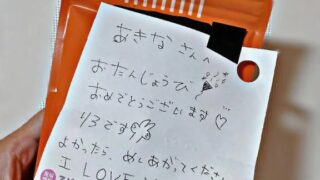 あきなさんへ
おたんじょうび
おめでとうございます♡
よかったら、めしあがってくださ
I LOVE